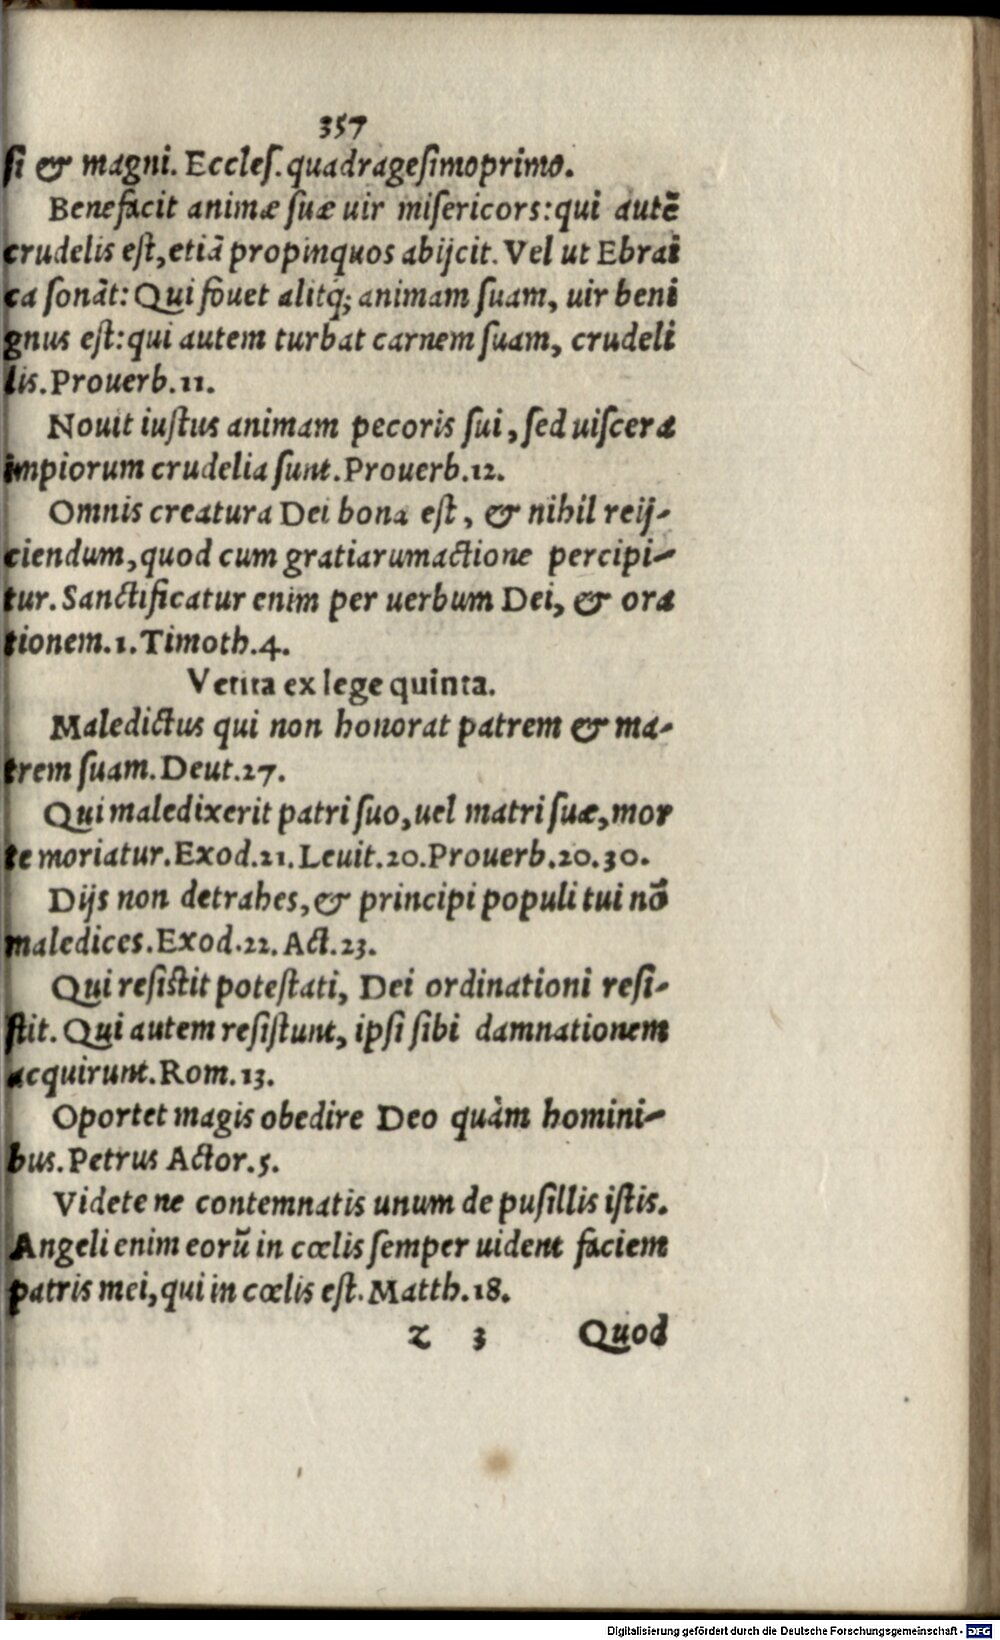 357
ſi & magni. Eccleſ. quadrageſimoprimo.
Benefacit animæ ſuæ uir miſericors: qui autẽ
crudelis eſt, etiã propinquos abijcit. Vel ut Ebrai
ca ſonãt: Qui fouet alitq́; animam ſuam, uir beni
gnus eſt: qui autem turbat carnem ſuam, crudeli
lis. Prouerb. 11.
Nouit iuſtus animam pecoris ſui, ſed uiſcera
impiorum crudelia ſunt. Prouerb. 12.
Omnis creatura Dei bona eſt, & nihil reij-
ciendum, quod cum gratiarumactione percipi-
tur. Sanctificatur enim per uerbum Dei, & ora
tionem. 1. Timoth. 4.
Vetita ex lege quinta.
Maledictus qui non honorat patrem & ma-
trem ſuam. Deut. 27.
Qui maledixerit patri ſuo, uel matri ſuæ, mor
te moriatur. Exod. 21. Leuit. 20. Prouerb. 20. 30.
Dijs non detrahes, & principi populi tui nõ
maledices. Exod. 22. Act. 23.
Qui reſiſtit poteſtati, Dei ordinationi reſi-
ſtit. Qui autem reſiſtunt, ipſi ſibi damnationem
acquirunt. Rom. 13.
Oportet magis obedire Deo quàm homini-
bus. Petrus Actor. 5.
Videte ne contemnatis unum de puſillis iſtis.
Angeli enim eorũ in cœlis ſemper uident faciem
patris mei, qui in cœlis eſt. Matth. 18.
z 3 Quod
Digitalisierung gefördert durch die Deutsche Forschungsgemeinschaft - DFG